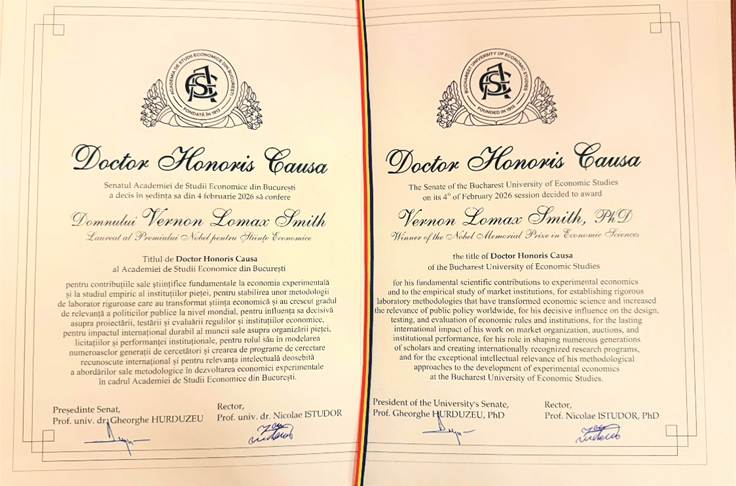 ACADEMIA DE STUDII ECONOMICE DIN BUCUREȘTI
FONDATĂ ÎN 1913
Doctor Honoris Causa
Senatul Academiei de Studii Economice din București
a decis în ședința sa din 4 februarie 2026 să confere
Domnului Vernon Lomax Smith
Laureat al Premiului Nobel pentru Științe Economice
Titlul de Doctor Honoris Causa
al Academiei de Studii Economice din București
pentru contribuțiile sale științifice fundamentale la economia experimentală
și la studiul empiric al instituțiilor pieței, pentru stabilirea unor metodologii
de laborator riguroase care au transformat știința economică și au crescut gradul
de relevanță a politicilor publice la nivel mondial, pentru influența sa decisivă
asupra proiectării, testării și evaluării regulilor și instituțiilor economice,
pentru impactul internațional durabil al muncii sale asupra organizării pieței,
licitațiilor și performanței instituționale, pentru rolul său în modelarea
numeroaselor generații de cercetători și crearea de programe de cercetare
recunoscute internațional și pentru relevanța intelectuală deosebită
a abordărilor sale metodologice în dezvoltarea economiei experimentale
în cadrul Academiei de Studii Economice din București.
Președinte Senat,
Prof. univ. dr. Gheorghe HURDUZEU
Rector,
Prof. univ. dr. Nicolae ISTUDOR
BUCHAREST UNIVERSITY OF ECONOMIC STUDIES
FOUNDED IN 1913
Doctor Honoris Causa
The Senate of the Bucharest University of Economic Studies
on its 4th of February 2026 session decided to award
Vernon Lomax Smith, PhD
Winner of the Nobel Memorial Prize in Economic Sciences
the title of Doctor Honoris Causa
of the Bucharest University of Economic Studies
for his fundamental scientific contributions to experimental economics
and to the empirical study of market institutions, for establishing rigorous
laboratory methodologies that have transformed economic science and increased
the relevance of public policy worldwide, for his decisive influence on the design,
testing, and evaluation of economic rules and institutions, for the lasting
international impact of his work on market organization, auctions, and
institutional performance, for his role in shaping numerous generations
of scholars and creating internationally recognized research programs,
and for the exceptional intellectual relevance of his methodological
approaches to the development of experimental economics
at the Bucharest University of Economic Studies.
President of the University's Senate,
Prof. Gheorghe HURDUZEU, PhD
Rector,
Prof. Nicolae ISTUDOR, PhD